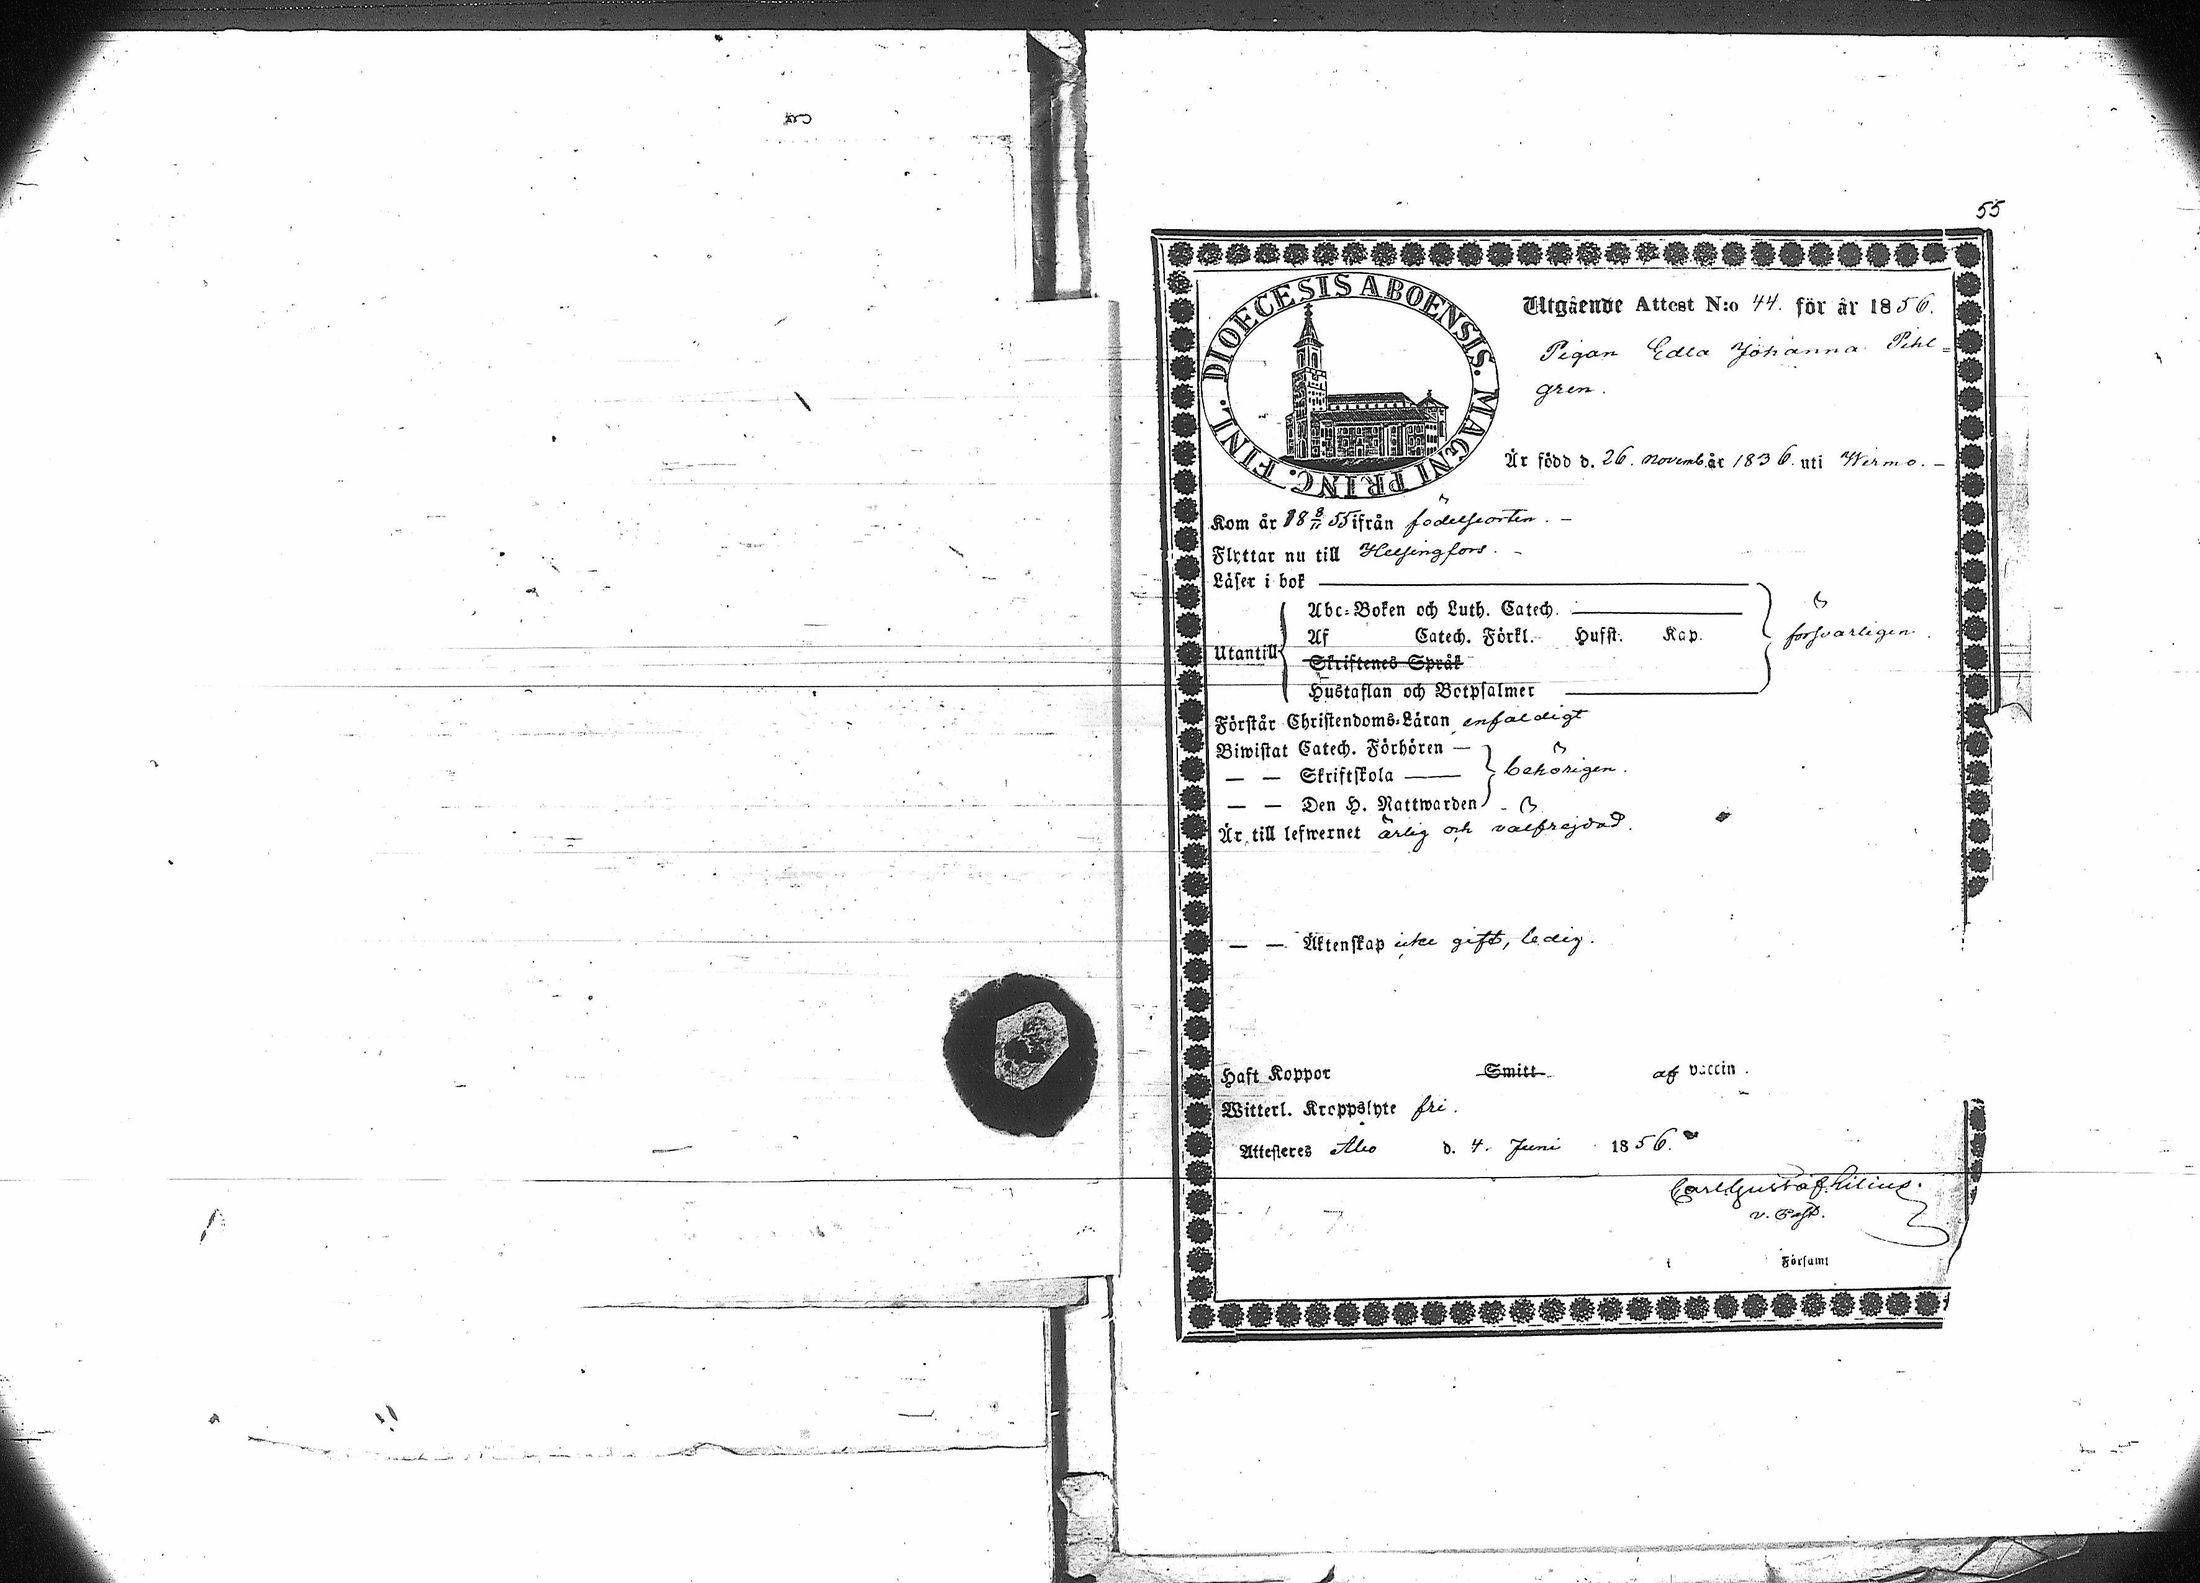 55
DIOECESIS ABOENSIS. MAGNI PRINC. FINL.
Utgående Attest N:o 44. för år 1856.
Pigan Edla Johanna Pihl=
gren.
Är född d. 26. Novemb. år 1836. uti Wirmo. –
Kom år 18 8/11 55 ifrån födelseorten. –
Flyttar nu till Helsingfors. –
Läser i bok
Abc-Boken och Luth. Catech.
Af Catech. Förkl. Husst. Kap.
försvarligen.
Utantill
Skriftenes Språk
Hustaflan och Botpsalmer
Förstår Christendoms-Läran enfaldigt
Biwistat Catech. Förhören —
— — Skriftskola — behörigen.
— — Den H. Nattwarden
Är till lefwernet ärlig och välfrejdad.
— — Äktenskap icke gift, ledig.
Haft Koppor Smitt af vaccin.
Witterl. Kroppslyte fri.
Attesteras Åbo d. 4. Juni 1856.
Carl Gustaf Lilius.
v. Past.
i Församl